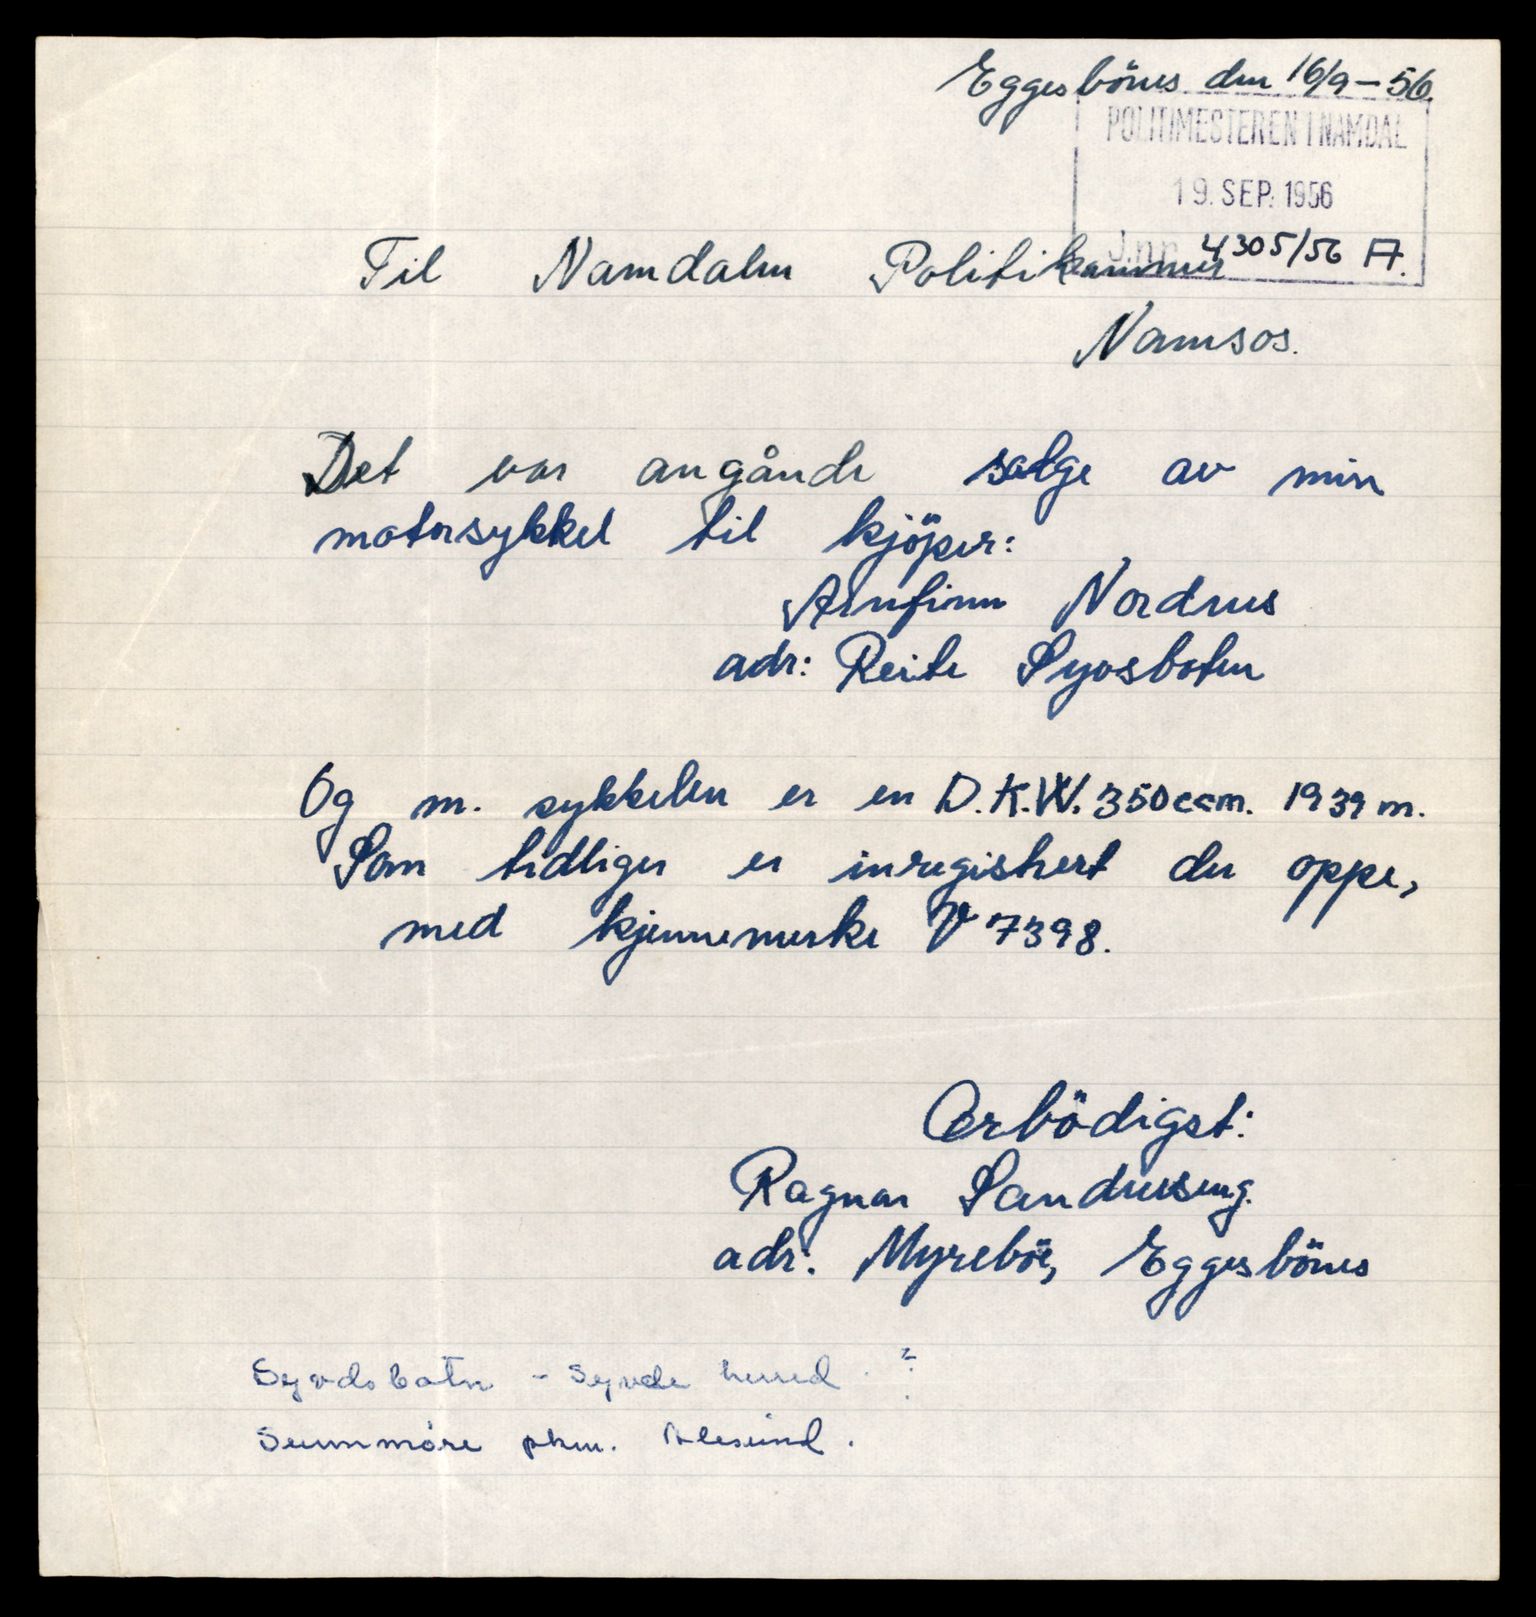 Eggesbönes den 16/9-56.
POLITIMESTEREN I NAMDAL
19. SEP. 1956
J.nr. 4305/56 A.
Til Namdalen Politikammer
Namsos.
Det var angånde salge av min
motorsykkel til kjöper:
Arnfinn Nordnes
adr: Reite Syvsboten
Og m. sykkelen er en D.K.W. 350ccm. 1939 m.
Som tidliger er inregistrert der oppe,
med kjennemerke V 7398.
Ærbödigst:
Ragnar Sandneseng.
adr: Myreböe, Eggesbönes
Syvdsbotn - Syvde herred ?
Sunnmöre pkm. Ålesund.